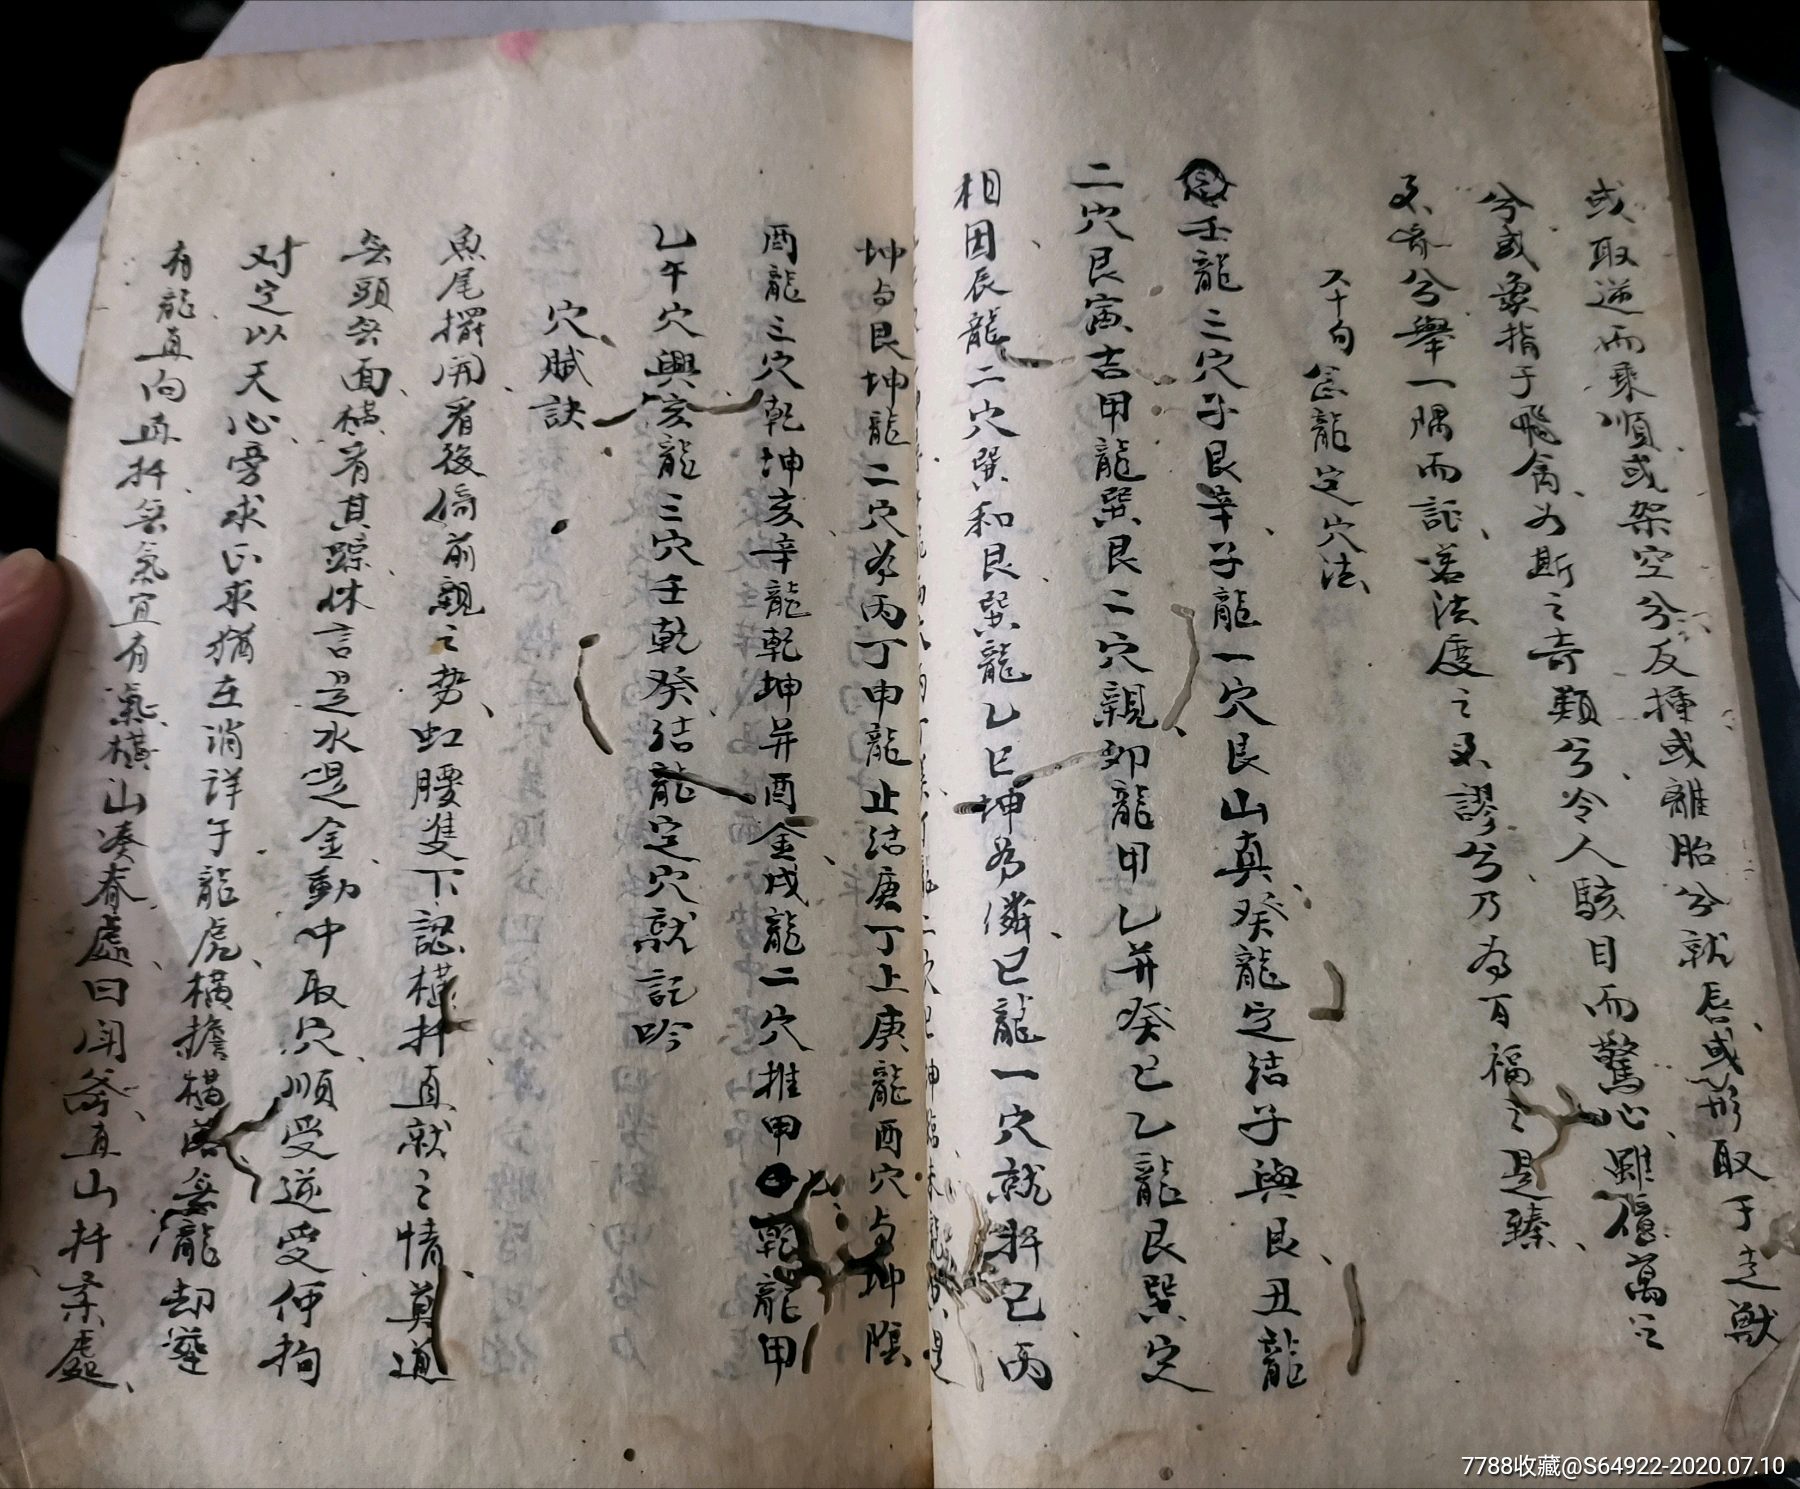 或取逆而乘順或架空兮反撞或離胎兮就唇或形取于走獸
兮或象指于飛禽如斯之奇類兮令人駭目而驚心雖傳萬之
不齊兮舉一隅而託若法度之不謬兮乃為百福之是臻
龍定穴法
壬龍三穴子艮辛子龍一穴艮山真癸龍定結子與艮丑龍
二穴艮寅吉甲龍巽艮二穴親卯龍甲乙并癸巳乙龍艮巽定
相因辰龍二穴巽和艮巽龍乙巳坤為隣巳龍一穴就扦巳丙
坤与艮坤龍二穴為丙丁申龍止結庚丁上庚龍酉穴与坤陰
酉龍三穴乾坤亥辛龍乾坤并酉金戌龍二穴推甲乾龍甲
乙午穴興亥龍三穴壬乾癸結龍定穴就記吟
穴賦訣
魚尾擺開看後倚前親之势虹腰隻下認橫扦直就之情莫道
無頭無面橫看其踪休言是水是金動中取穴順受逆受仲拘
对定以天心旁求正求猶在消詳乎龍虎橫擔橫落無龍却葬
有龍直向直扦無氣宜有氣橫山凑脊處曰開斧直山扦柔處
7788收藏@S64922-2020.07.10